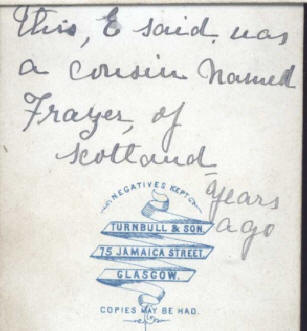 This, E said, was
a cousin named
Frazer, of
Scotland
years
ago
NEGATIVES KEPT
TURNBULL & SON.
75 JAMAICA STREET,
GLASGOW.
COPIES MAY BE HAD.